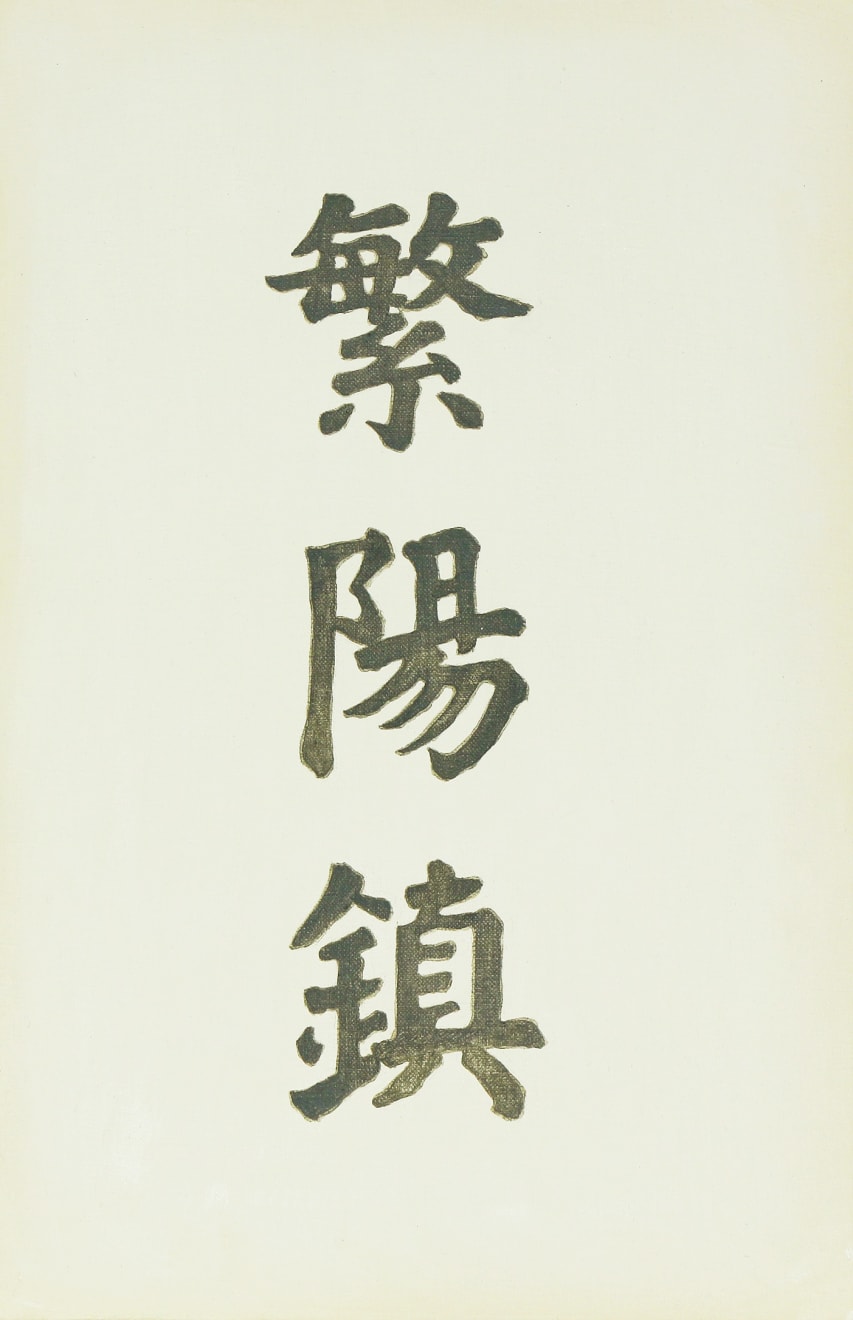 繁陽鎮